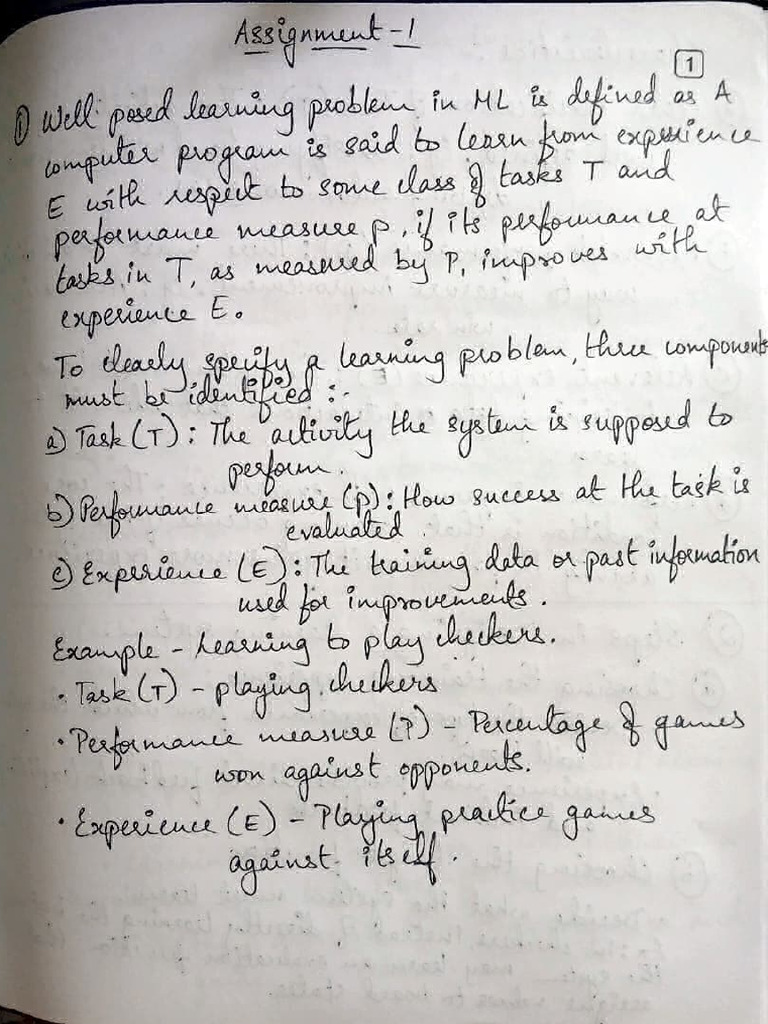 Assignment-1
1
① Well posed learning problem in ML is defined as A
computer program is said to learn from experience
E with respect to some class of tasks T and
performance measure p, if its performance at
tasks in T, as measured by P, improves with
experience E.
To clearly specify a learning problem, three components
must be identified :-
a) Task (T) : The activity the system is supposed to
perform.
b) Performance measure (p) : How success at the task is
evaluated.
c) Experience (E) : The training data or past information
used for improvements.
Example - Learning to play checkers.
• Task (T) - playing checkers
• Performance measure (P) - Percentage of games
won against opponents.
• Experience (E) - Playing practice games
against itself.